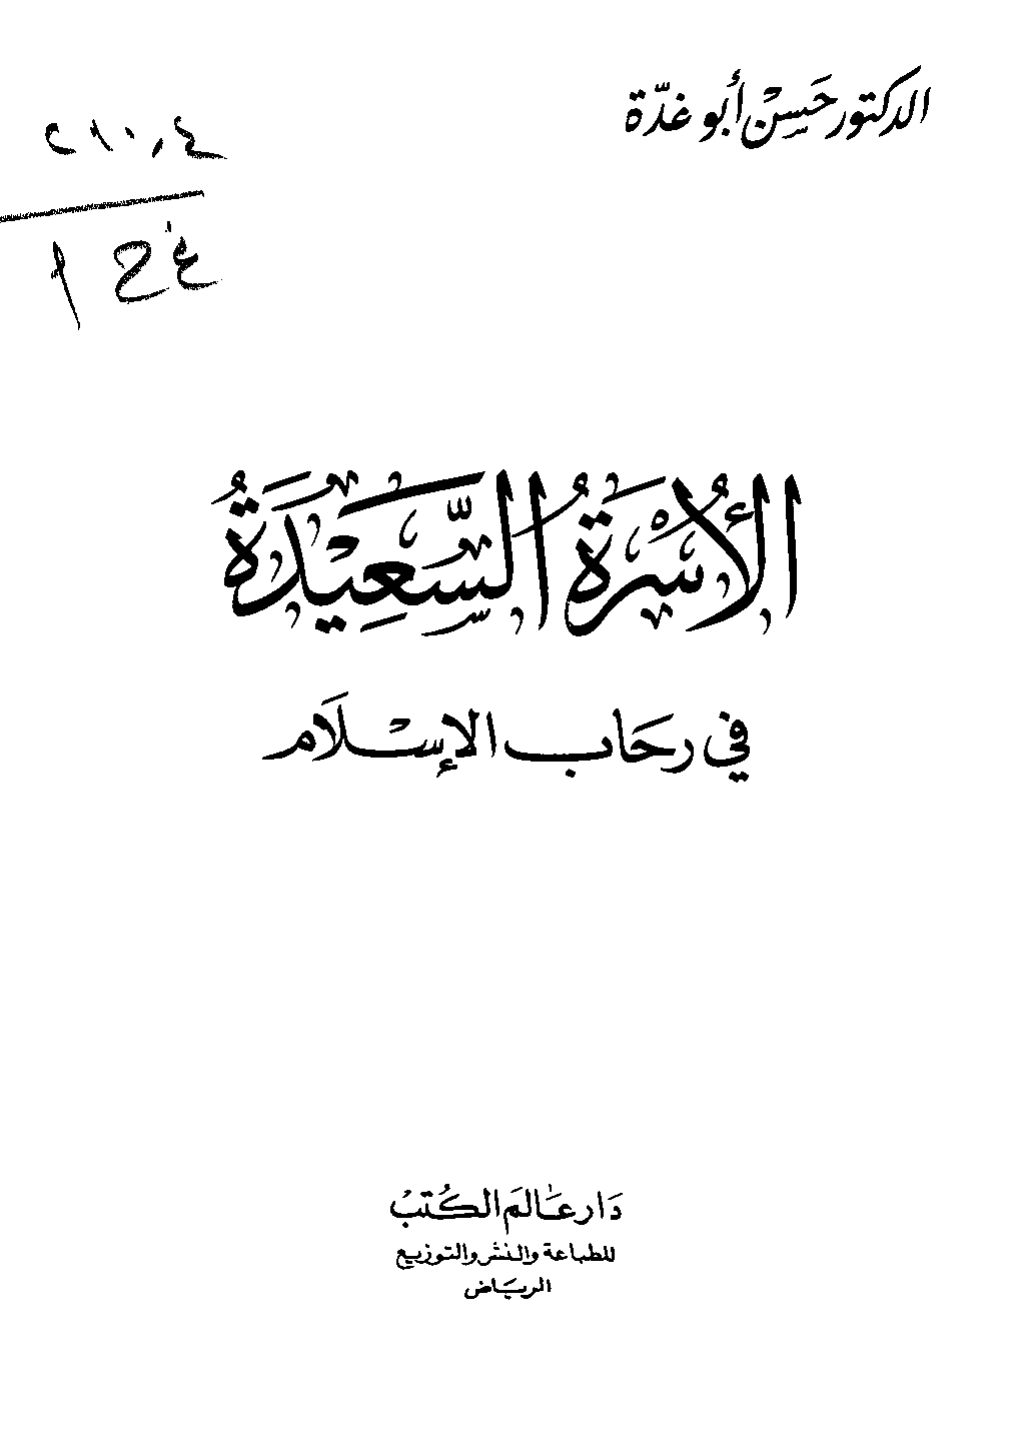 الدكتور حَسَنْ أبو غدّة
٢١٠,٤
غ ح ا
الأُسْرَةُ السَّعِيْدَةُ
في رحَاب الإسْلَام
دَار عَالَم الكُتبْ
للطباعة والنشر والتوزيع
الريَاض